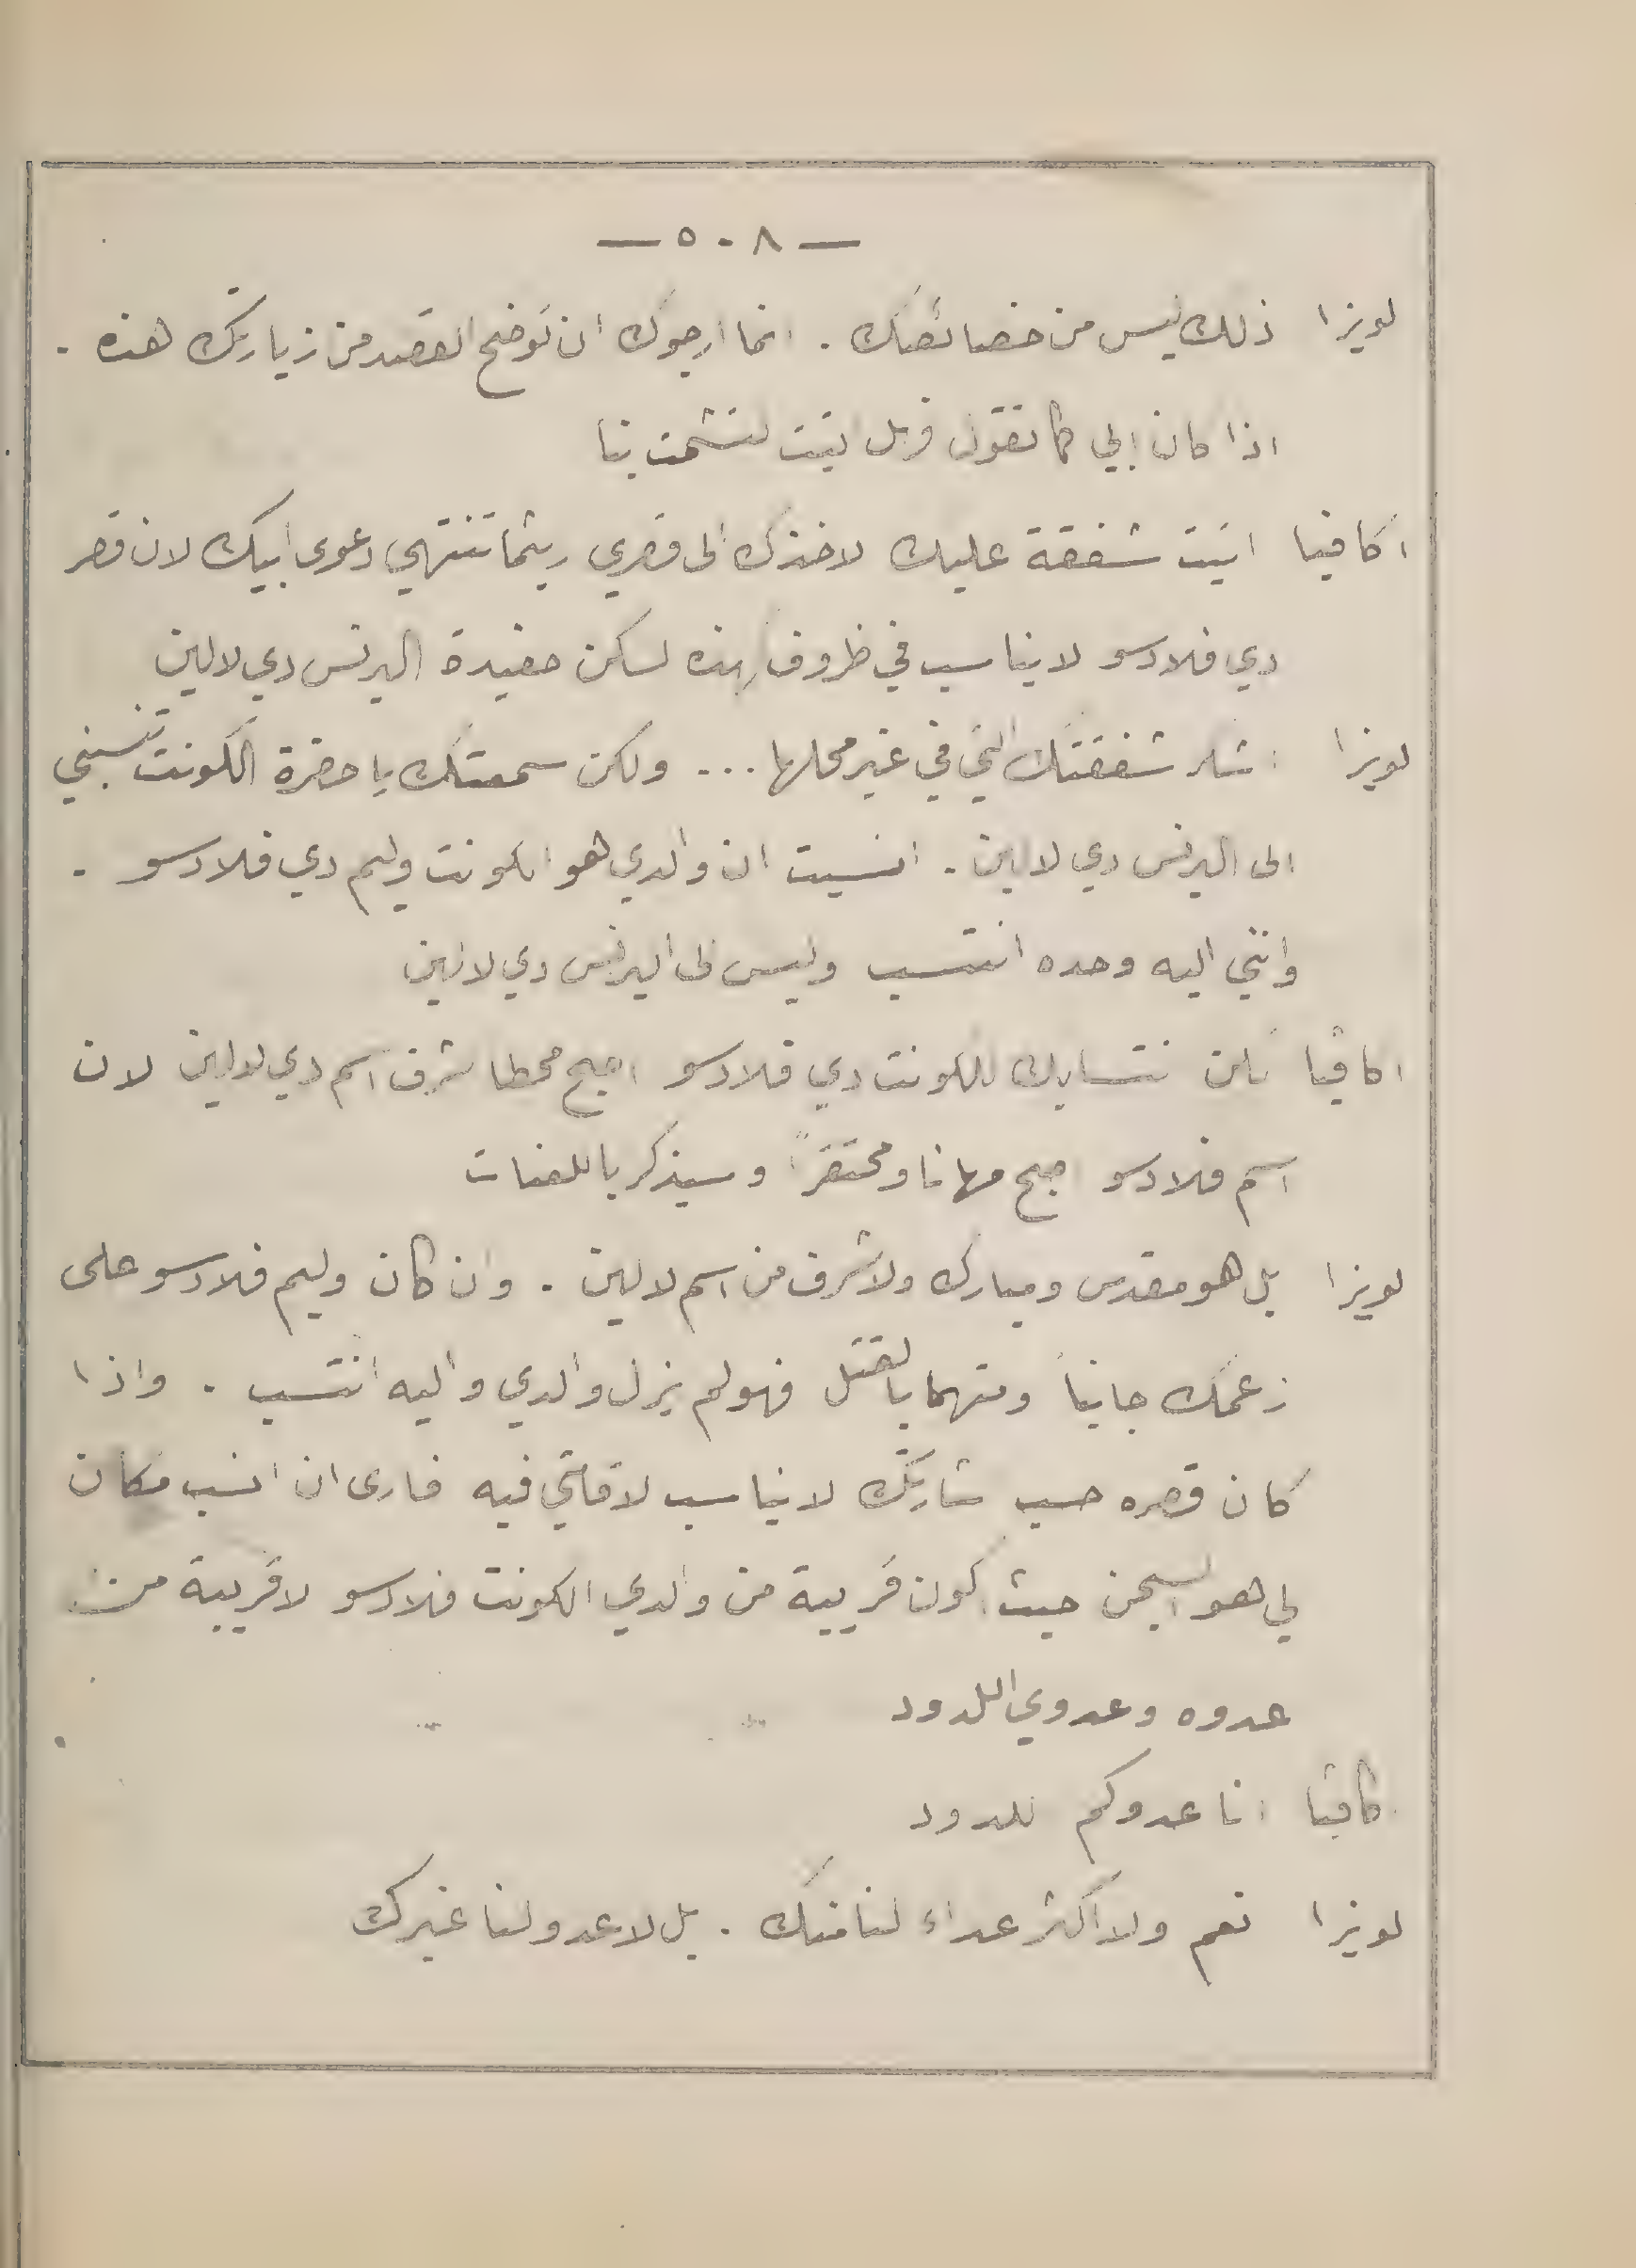 — ٥٠٨ —
لويزا ذلك ليس من خصائصك . انما ارجوك ان توضح القصد من زيارتك هذه .
اذا كان ابي كما تقول فهل اتيت لتشمت بنا
اكافيا اتيت شفقة عليك لاخذك الى قصري ريثما تنتهي دعوى ابيك لان قصر
دي فلادسو لا يناسب في ظروف كهذه لسكن حفيدة البرنس دي لالين
لويزا اشكر شفقتك التي في غير محلها ... ولكن سمعتك يا حضرة الكونت تنسبني
الى البرنس دي لالين . انسيت ان والدي هو الكونت وليم دي فلادسو .
وانني اليه وحده انتسب وليس الى البرنس دي لالين
اكافيا لكن انتسابك للكونت دي فلادسو اصبح محطا لشرف اسم دي لالين لان
اسم فلادسو اصبح مهانا ومحتقراً وسيذكر باللعنات
لويزا بل هو مقدس ومبارك ولاشرف من اسم لالين . وان كان وليم فلادسو على
زعمك جانياً ومتهما بالقتل فهو لم يزل والدي واليه انتسب . واذا
كان قصره حسب شارتك لا يناسب لاقامتي فيه فارى ان انسب مكان
لي هو السجن حيث اكون قريبة من والدي الكونت فلادسو لا قريبة من
عدوه وعدوي اللدود
اكافيا انا عدوكم اللدود
لويزا نعم ولا اكثر عداء لنا منك . بل لا عدو لنا غيرك